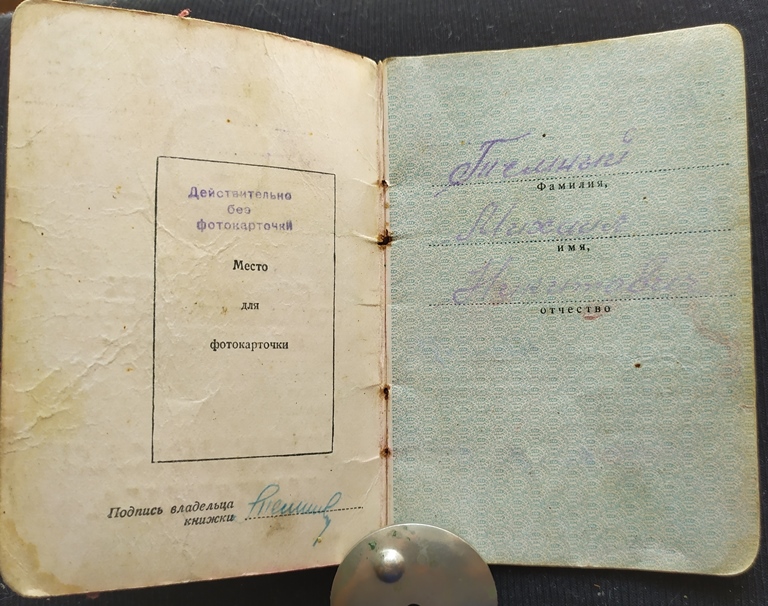 Действительно
без
фотокарточки
Место
для
фотокарточки
Подпись владельца
книжки
Фамилия,
Михаил
имя,
Никитович
отчество